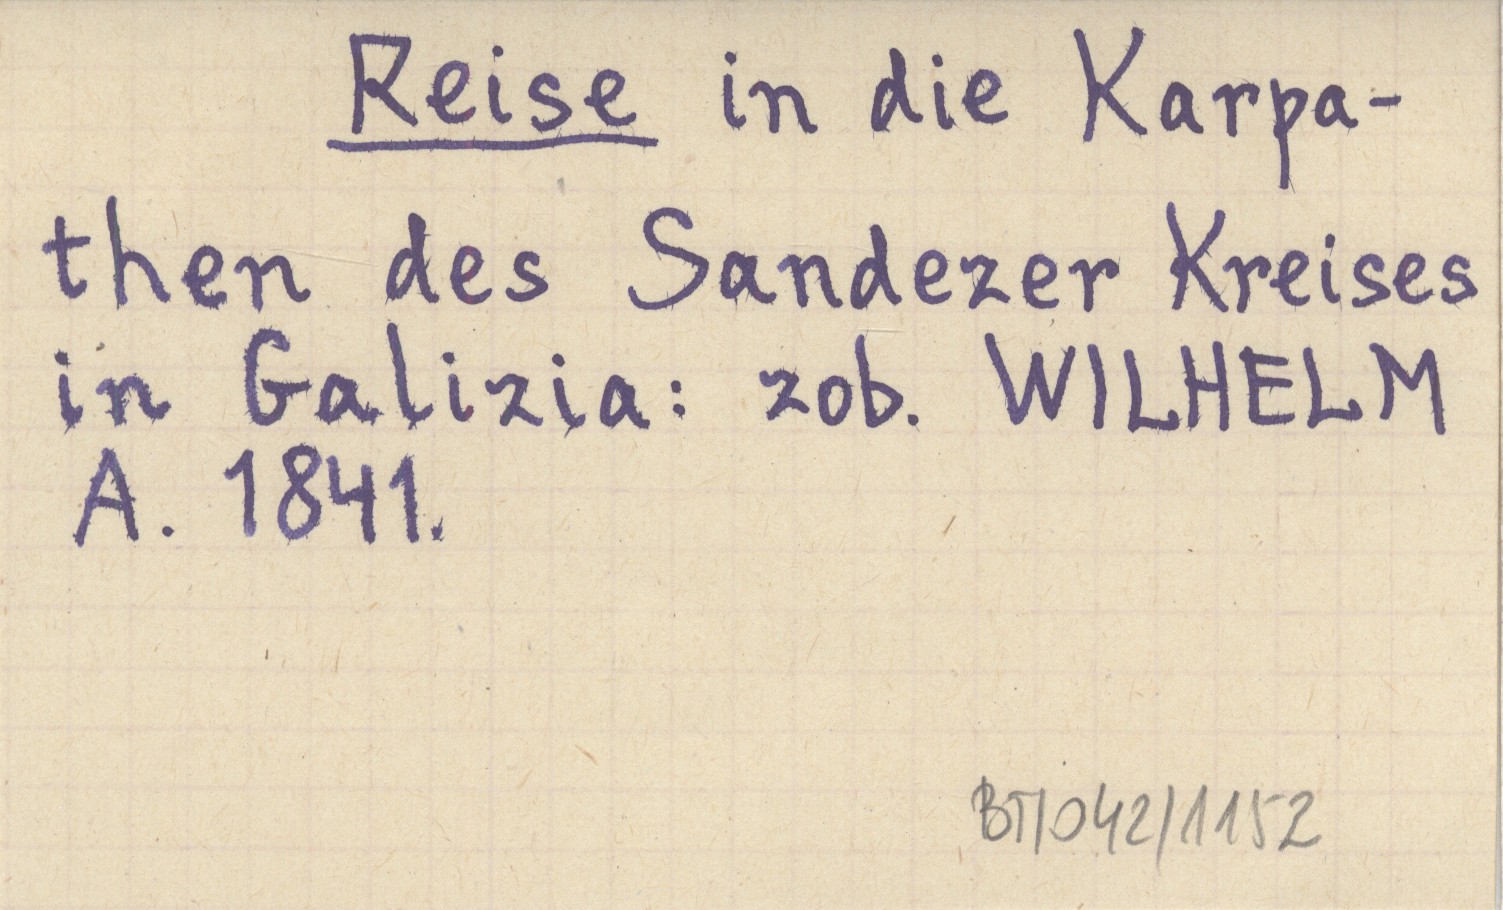 Reise in die Karpa-
then des Sandezer Kreises
in Galizia: zob. WILHELM
A. 1841.
BT/042/1152